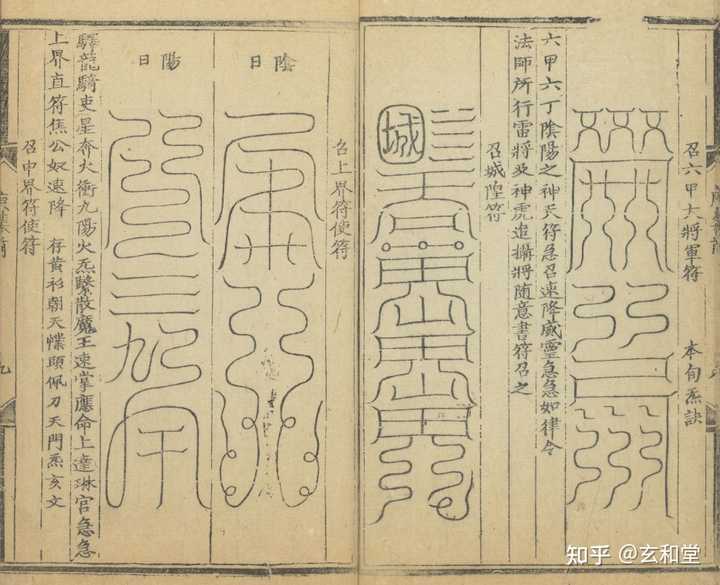 召六甲大將軍符　本旬炁訣
六甲六丁陰陽之神天符急召速降威靈急急如律令
法師所行雷將及神虎追攝將随意書符召之
召城隍符
城
召上界符使符
陰日
陽日
驛龍騎吏星奔火衝九陽火炁緊散魔王速掌應命上達琳宮急急
上界直符焦公奴速降　存黃衫朝天幞頭佩刀天門炁亥文
召中界符使符
九
知乎 @玄和堂